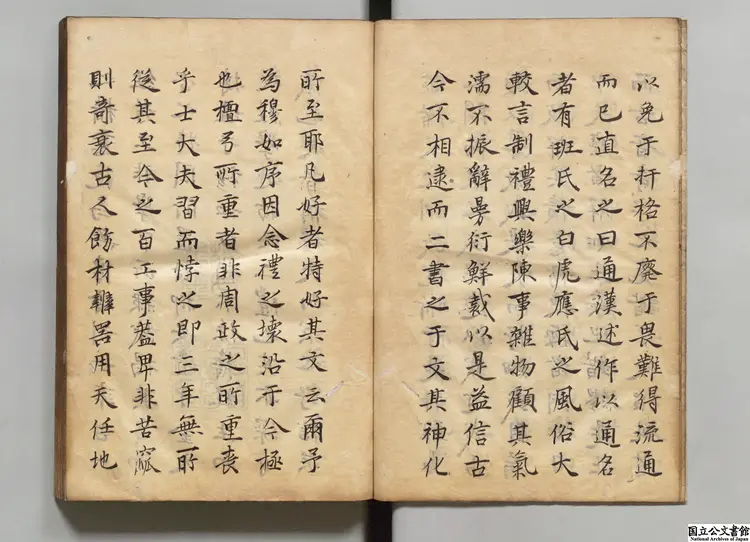 以免于扞格不廢于畏難得流通
而已直名之曰通漢述作以通名
者有班氏之白虎應氏之風俗大
較言制禮興樂陳事雜物顧其氣
濡不振辭曼衍鮮裁以是益信古
今不相逮而二書之于文其神化
所至耶凡好者特好其文云爾予
為穆如序因念禮之壞沿于今極
也檀弓所重者非周政之所重喪
乎士大夫習而悖之即三年無所
從其至今之百工事蓋卑非苦窳
則奇衺古人飭材辨器用天任地
国立公文書館
National Archives of Japan